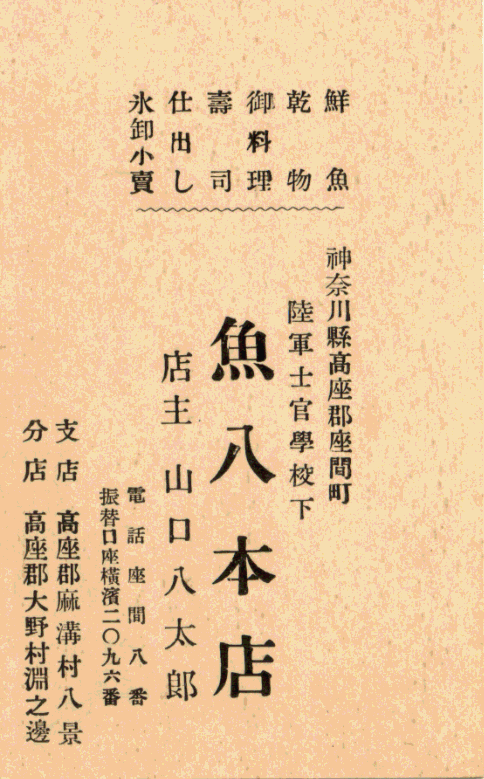 鮮魚
乾物
御料理
壽司
仕出し
氷卸小賣
神奈川縣高座郡座間町
陸軍士官學校下
魚八本店
店主 山口八太郎
電話座間八番
振替口座橫濱二〇九六番
支店 高座郡麻溝村八景
分店 高座郡大野村淵之邊